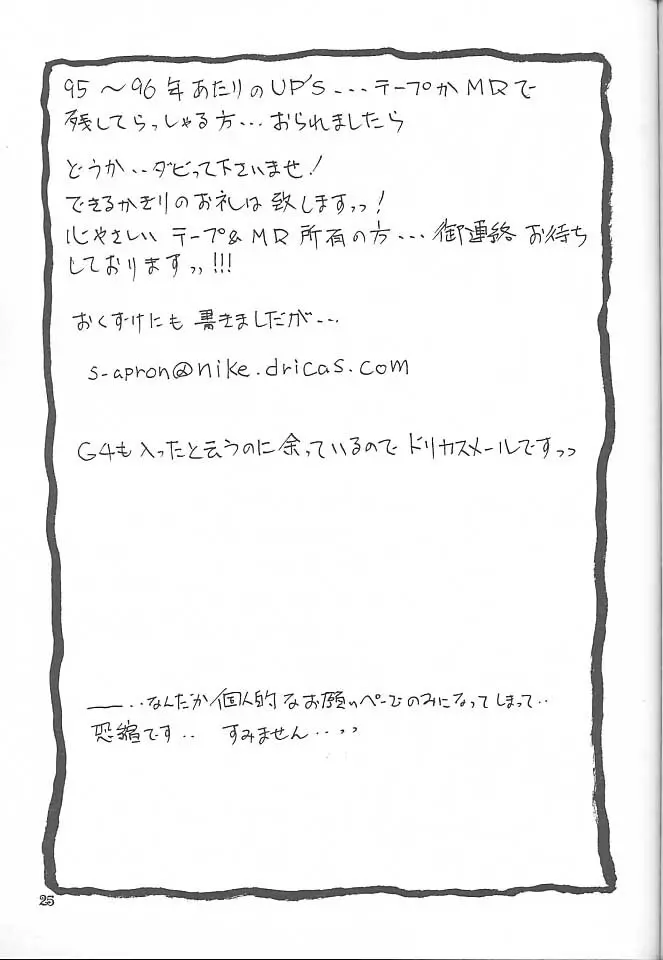 95～96年あたりのUP'S...テープかMDで
残してらっしゃる方...おられましたら
どうか..ダビって下さいませ!
できるかぎりのお礼は致しますっっ!
心やさしい テープ&MD所有の方... 御連絡お待ち
しておりますっっ!!!
おくづけにも 書きましたが...
s-apron@nike.dricas.com
G4も入ったと云うのに余っているので ドリカスメールですっっ
――..なんだか個人的なお願いページのみになってしまって..
恐縮です.. すみません..っっ
25